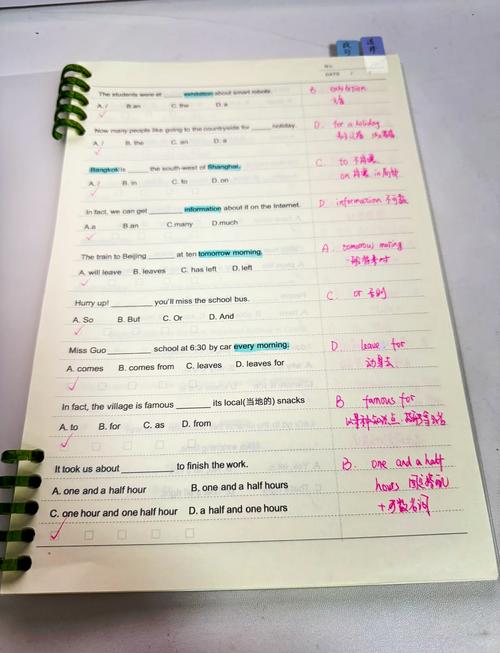 No.
DATE / /
The students were at ______ exhibition about smart robots.
A. / B.an C. the D. a
B.
Now many people like going to the countryside for _____ holiday.
A. / B. the C. an D. a
D. for a holiday
Bangkok is _____ the south-west of Shanghai.
A. / B. in C. to D. on
C. to 不接壤
on 接壤 in 局部
In fact, we can get _________ information about it on the Internet.
A.a B.an C.many D.much
D information 不可数
The train to Beijing ______ at ten tomorrow morning.
A. will leave B. leaves C. has left D. left
A. tomorrow
一般将来时
Hurry up! _________ you'll miss the school bus.
A. So B. But C. Or D. And
C. or 否则
Miss Guo _________ school at 6:30 by car every morning.
A. comes B. comes from C. leaves D. leaves for
D leave for
动身去
In fact, the village is famous _______ its local(当地的) snacks
A. to B. for C. as D. from
B famous for
It took us about ___________ to finish the work.
A. one and a half hour B. one and a half hours
C. one hour and one half hour D. a half and one hours
B. one and a half
hours
+可数名词